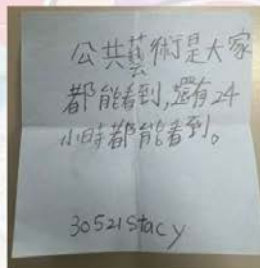 公共藝術是大家
都能看到,還有24
小時都能看到。
30521Stacy